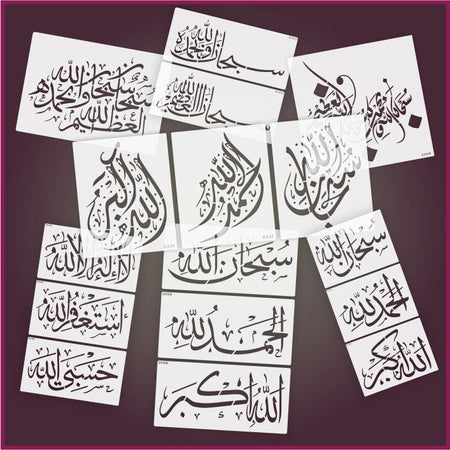 سبحان الله وبحمده
سبحان الله العظيم
سبحان الله وبحمده
سبحان الله العظيم
سبحان الله وبحمده
سبحان الله العظيم
الله أكبر
الحمد لله
سبحان الله
لا إله إلا الله
أستغفر الله
حسبي الله
سبحان الله
الحمد لله
الله أكبر
سبحان الله
الحمد لله
الله أكبر